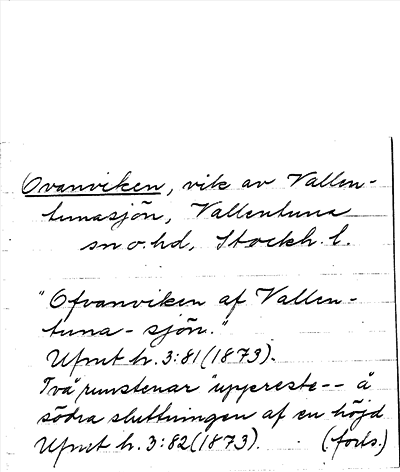 Ovanviken, vik av Vallen-
tunasjön, Vallentuna
sn o. hd, Stockh. l.
"Ofvanviken af Vallen-
tuna-sjön."
Ufmt h. 3:81 (1873).
Två runstenar "uppreste-- å
södra sluttningen af en höjd
Ufmt h. 3:82 (1873). (forts.)